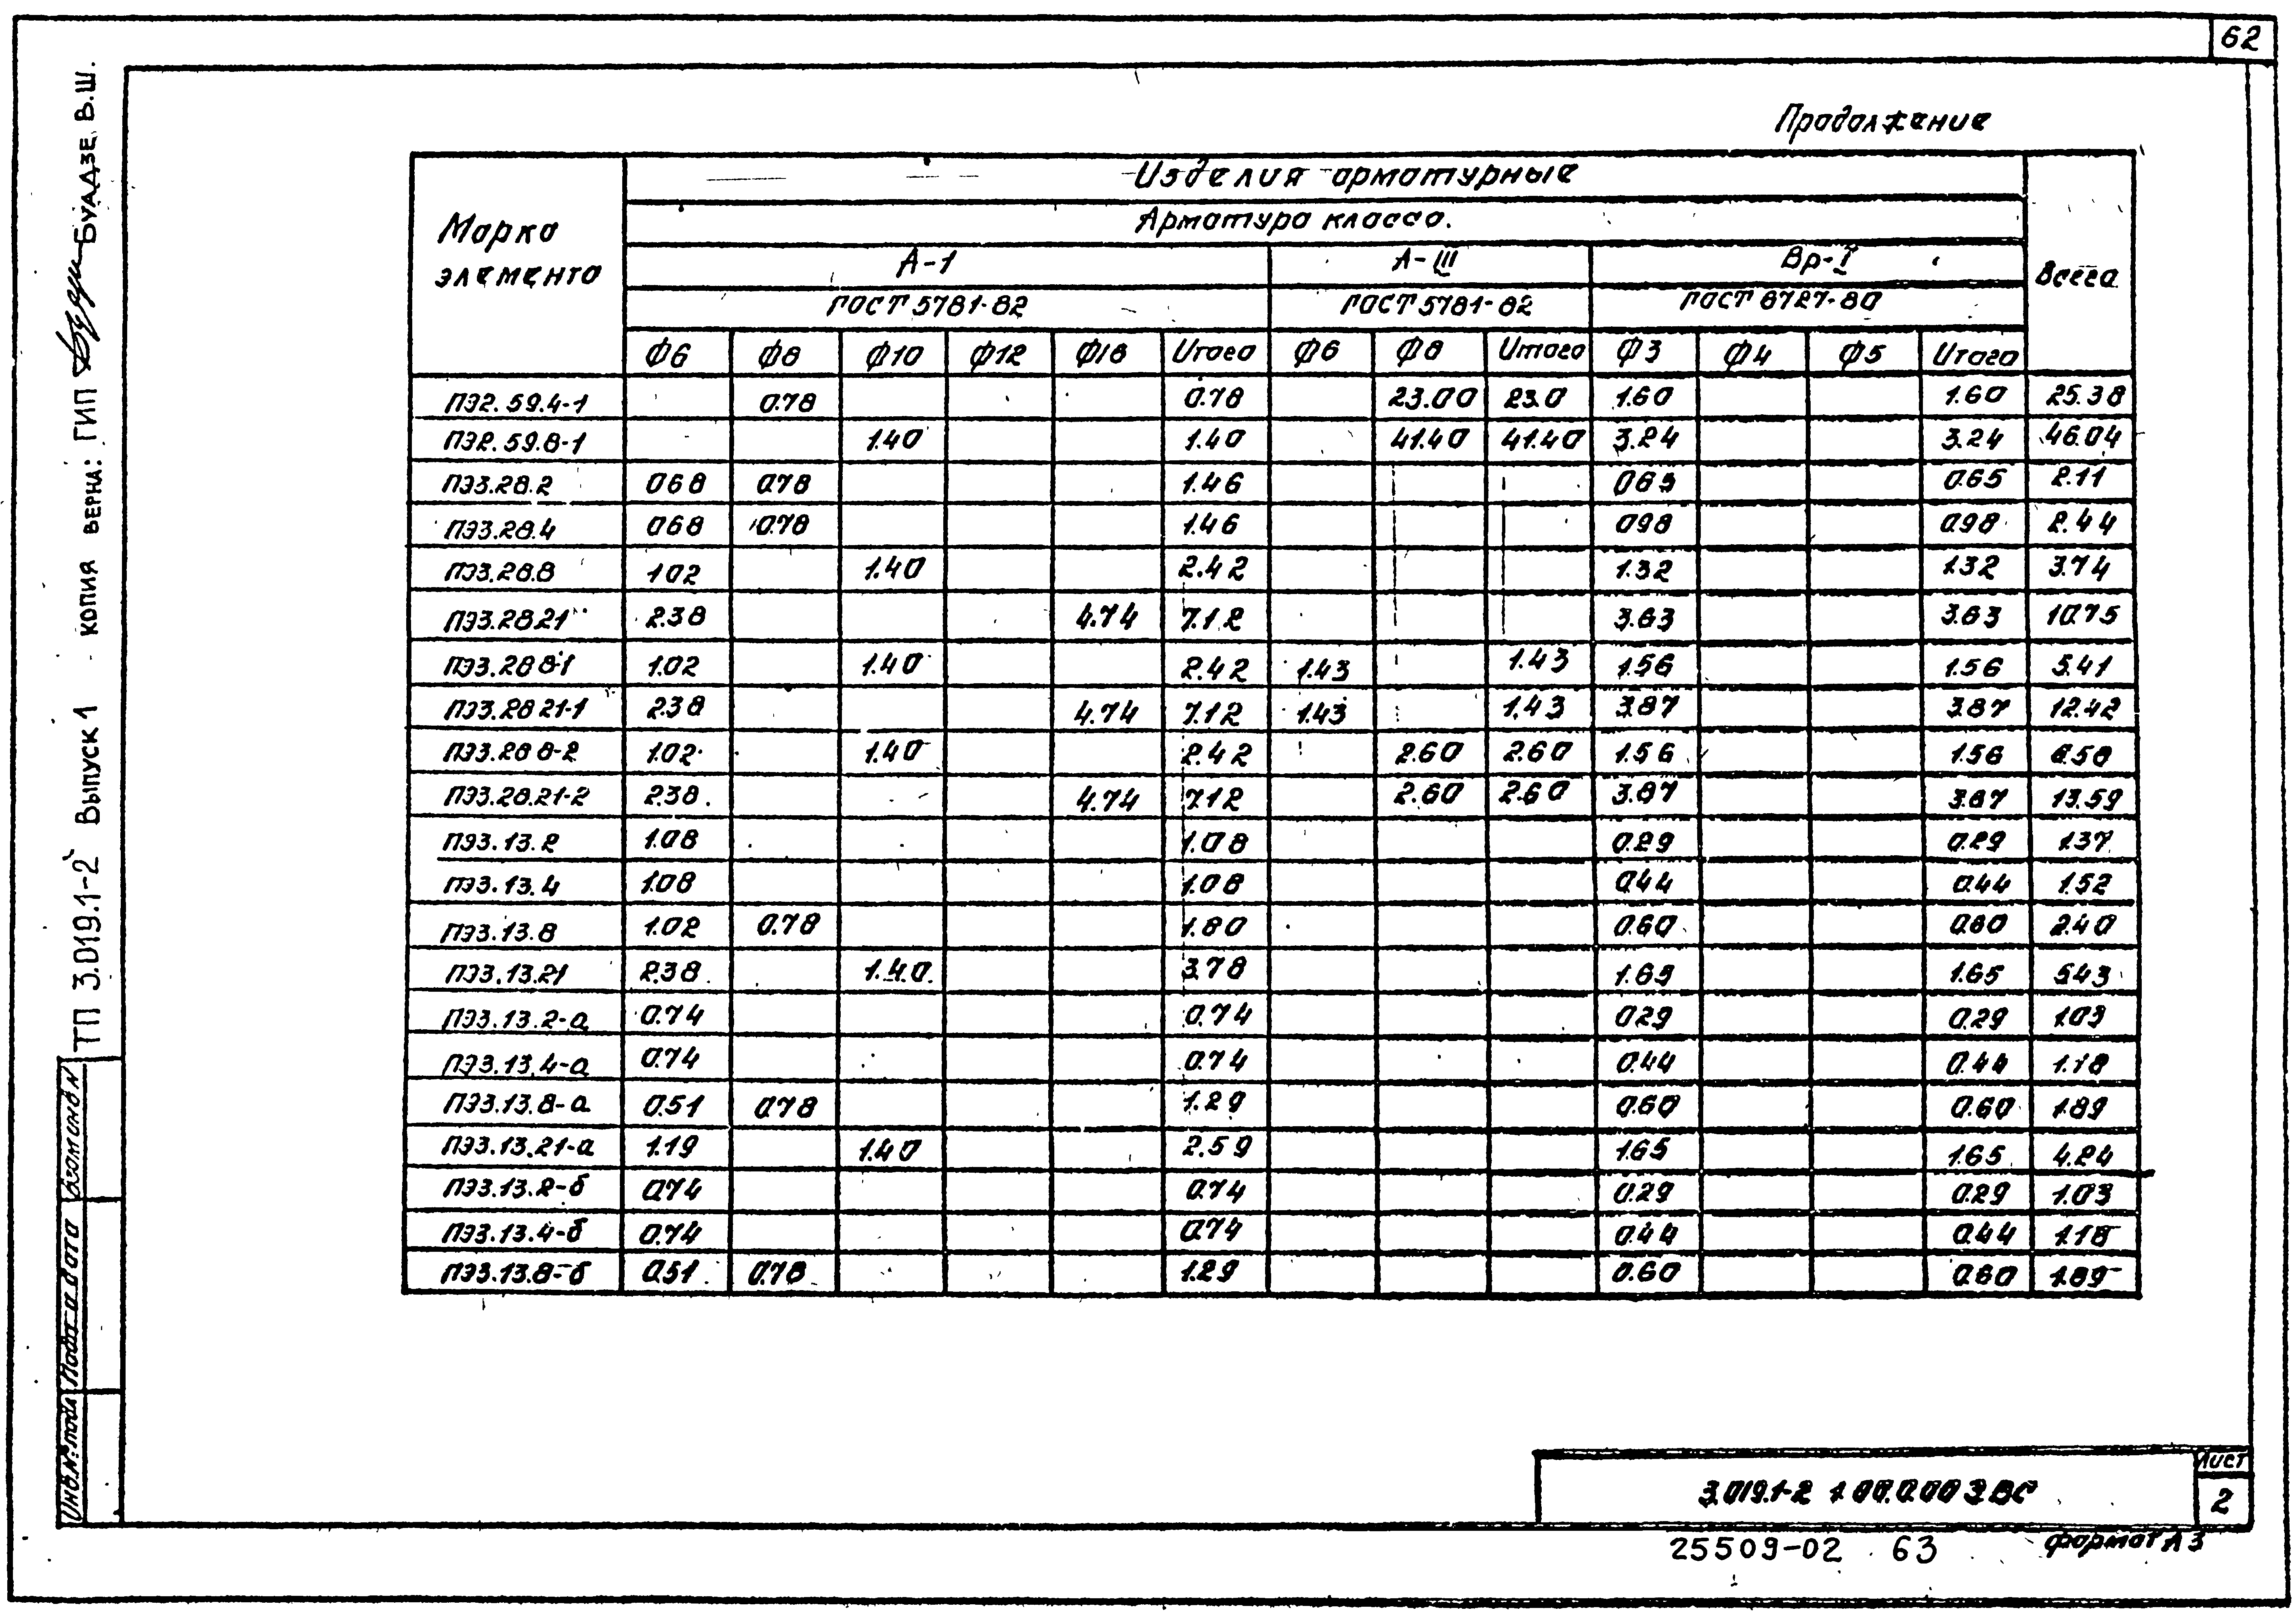 62
Продолжение
Марка элемента
Изделия арматурные
Всего
Арматура класса.
А-1 А-III Вр-I
ГОСТ 5781-82 ГОСТ 5781-82 ГОСТ 6727-80
Ф6 Ф8 Ф10 Ф12 Ф18 Итого Ф6 Ф8 Итого Ф3 Ф4 Ф5 Итого
ПЭ2.59.4-1 0.78 0.78 23.00 23.0 1.60 1.60 25.38
ПЭ2.59.8-1 1.40 1.40 41.40 41.40 3.24 3.24 46.04
ПЭ3.28.2 068 0.78 1.46 065 0.65 2.11
ПЭ3.28.4 068 0.78 1.46 098 0.98 2.44
ПЭ3.28.8 102 1.40 2.42 1.32 1.32 3.74
ПЭ3.2821 2.38 4.74 7.12 3.63 3.63 10.75
ПЭ3.28 8-1 1.02 1.40 2.42 1.43 1.43 1.56 1.56 5.41
ПЭ3.28 21-1 2.38 4.74 7.12 1.43 1.43 3.87 3.87 12.42
ПЭ3.28 8-2 1.02 1.40 2.42 2.60 2.60 1.56 1.56 6.58
ПЭ3.28.21-2 2.38 4.74 7.12 2.60 2.60 3.87 3.87 13.59
ПЭ3.13.2 1.08 1.08 0.29 0.29 1.37
ПЭ3.13.4 1.08 1.08 0.44 0.44 1.52
ПЭ3.13.8 1.02 0.78 1.80 0.60 0.60 2.40
ПЭ3.13.21 2.38 1.40 3.78 1.65 1.65 5.43
ПЭ3.13.2-а 0.74 0.74 0.29 0.29 1.03
ПЭ3.13.4-а 0.74 0.74 0.44 0.44 1.18
ПЭ3.13.8-а 0.51 0.78 1.29 0.60 0.60 1.89
ПЭ3.13.21-а 1.19 1.40 2.59 1.65 1.65 4.24
ПЭ3.13.2-б 0.74 0.74 0.29 0.29 1.03
ПЭ3.13.4-б 0.74 0.74 0.44 0.44 1.18
ПЭ3.13.8-б 0.51 0.78 1.29 0.60 0.60 1.89
ТП 3.019.1-2 Выпуск 1 копия верна: ГИП БУАДЗЕ В.Ш.
Инв.№ подл Подп и дата Взам инв N
3.019.1-2 1.00.0.00 ЭВС
Лист
2
25509-02 63
формат А3